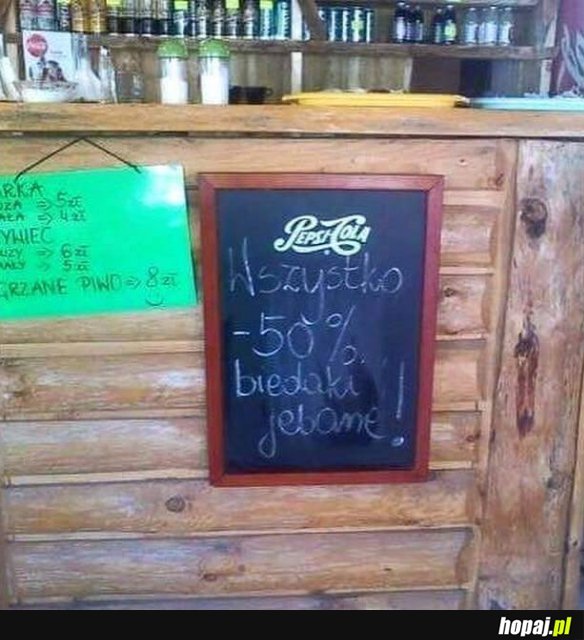 ARKA
UŻA => 5zł
AŁA => 4zł
YWIEC
UŻY => 6zł
MAŁY => 5zł
GRZANE PIWO => 8zł
PEPSI-COLA
Wszystko
-50%
biedaki
jebane!
hopaj.pl